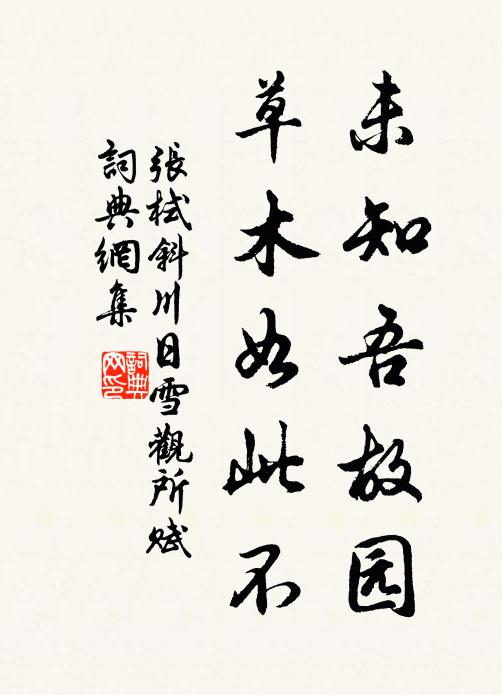 未知吾故园
草木如此不
張栻斜川日雪觀所賦
詞典網集
詞典网印